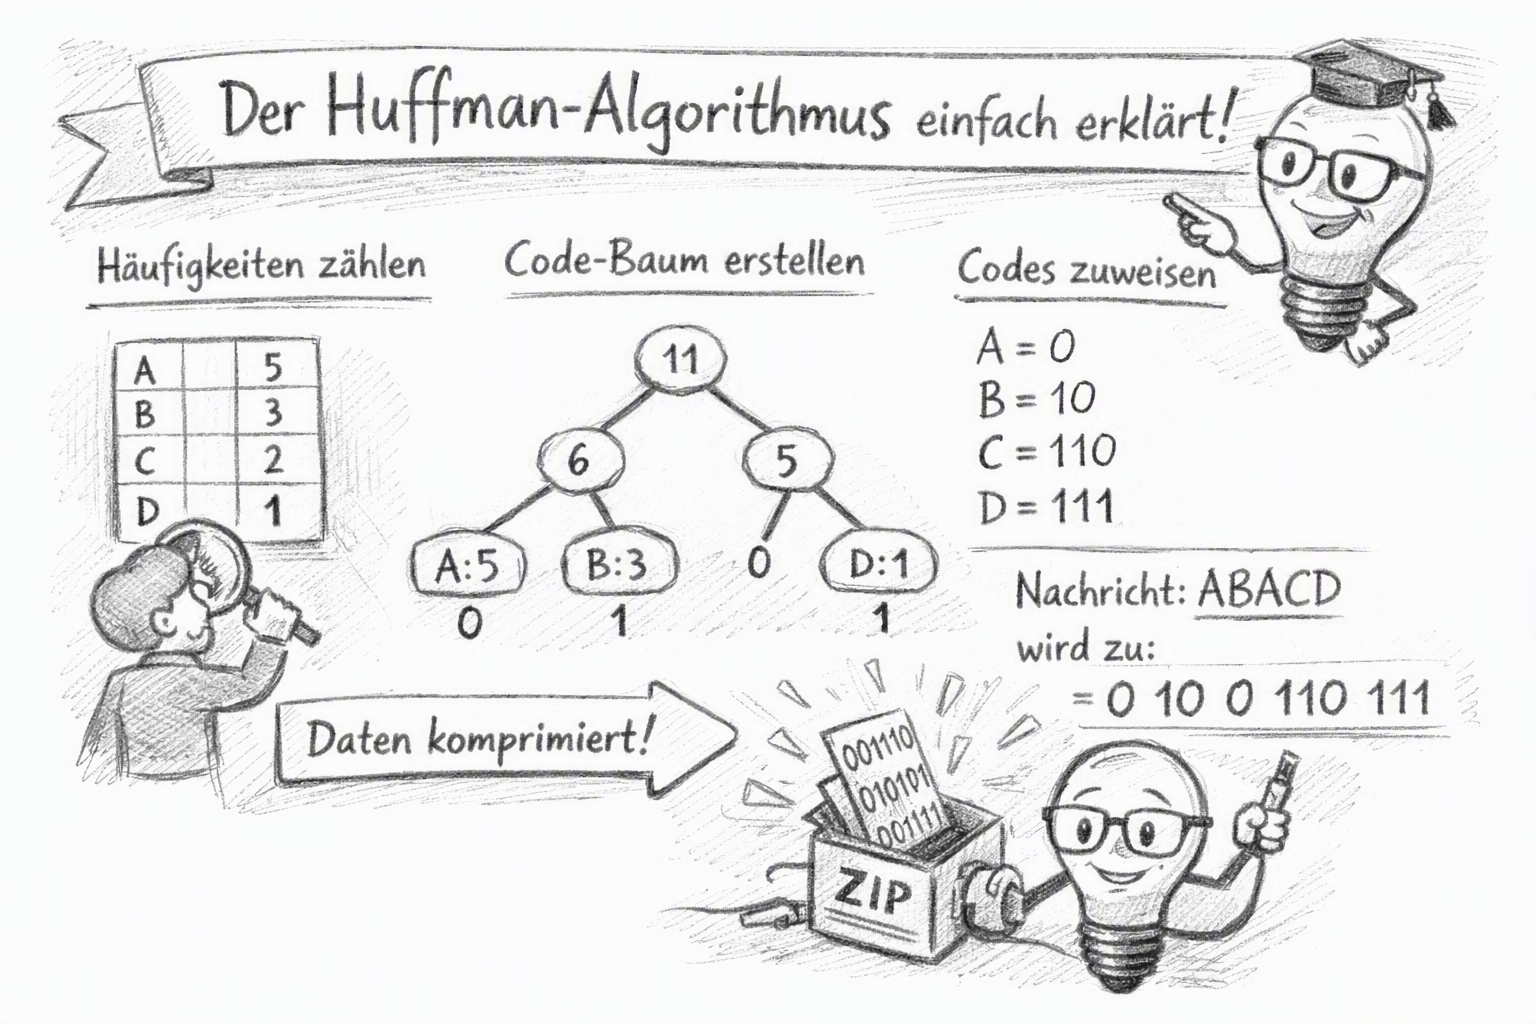 Der Huffman-Algorithmus einfach erklärt!
Häufigkeiten zählen
A 5
B 3
C 2
D 1
Code-Baum erstellen
11
6 5
A:5 B:3 0 D:1
0 1 1
Codes zuweisen
A = 0
B = 10
C = 110
D = 111
Nachricht: ABACD
wird zu:
= 0 10 0 110 111
Daten komprimiert!
001110
010101
001111
ZIP